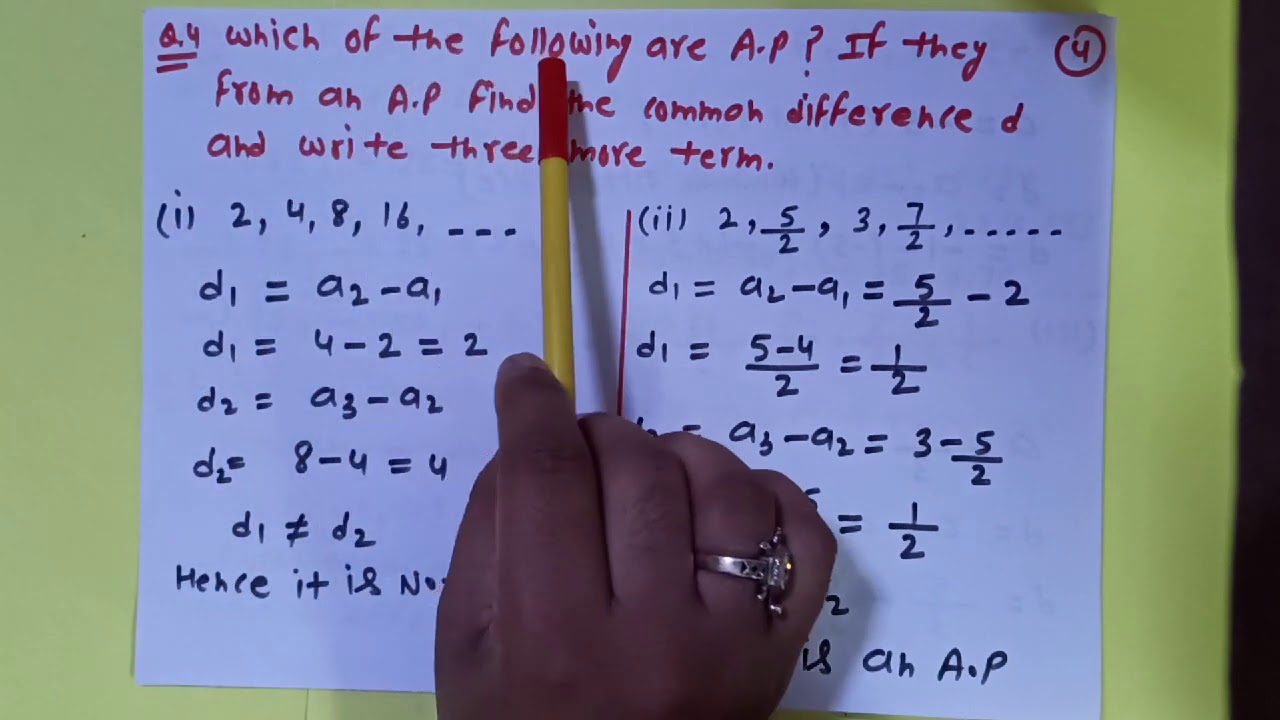 Q.4 which of the following are A.P? If they
④
from an A.P find the common difference d
and write three more term.
(i) 2, 4, 8, 16, ---
d₁ = a₂ - a₁
d₁ = 4 - 2 = 2
d₂ = a₃ - a₂
d₂= 8 - 4 = 4
d₁ ≠ d₂
Hence it is
(ii) 2, 5/2, 3, 7/2, .....
d₁ = a₂ - a₁ = 5/2 - 2
d₁ = 5-4/2 = 1/2
= a₃ - a₂ = 3 - 5/2
= 1/2
2
is an A.P